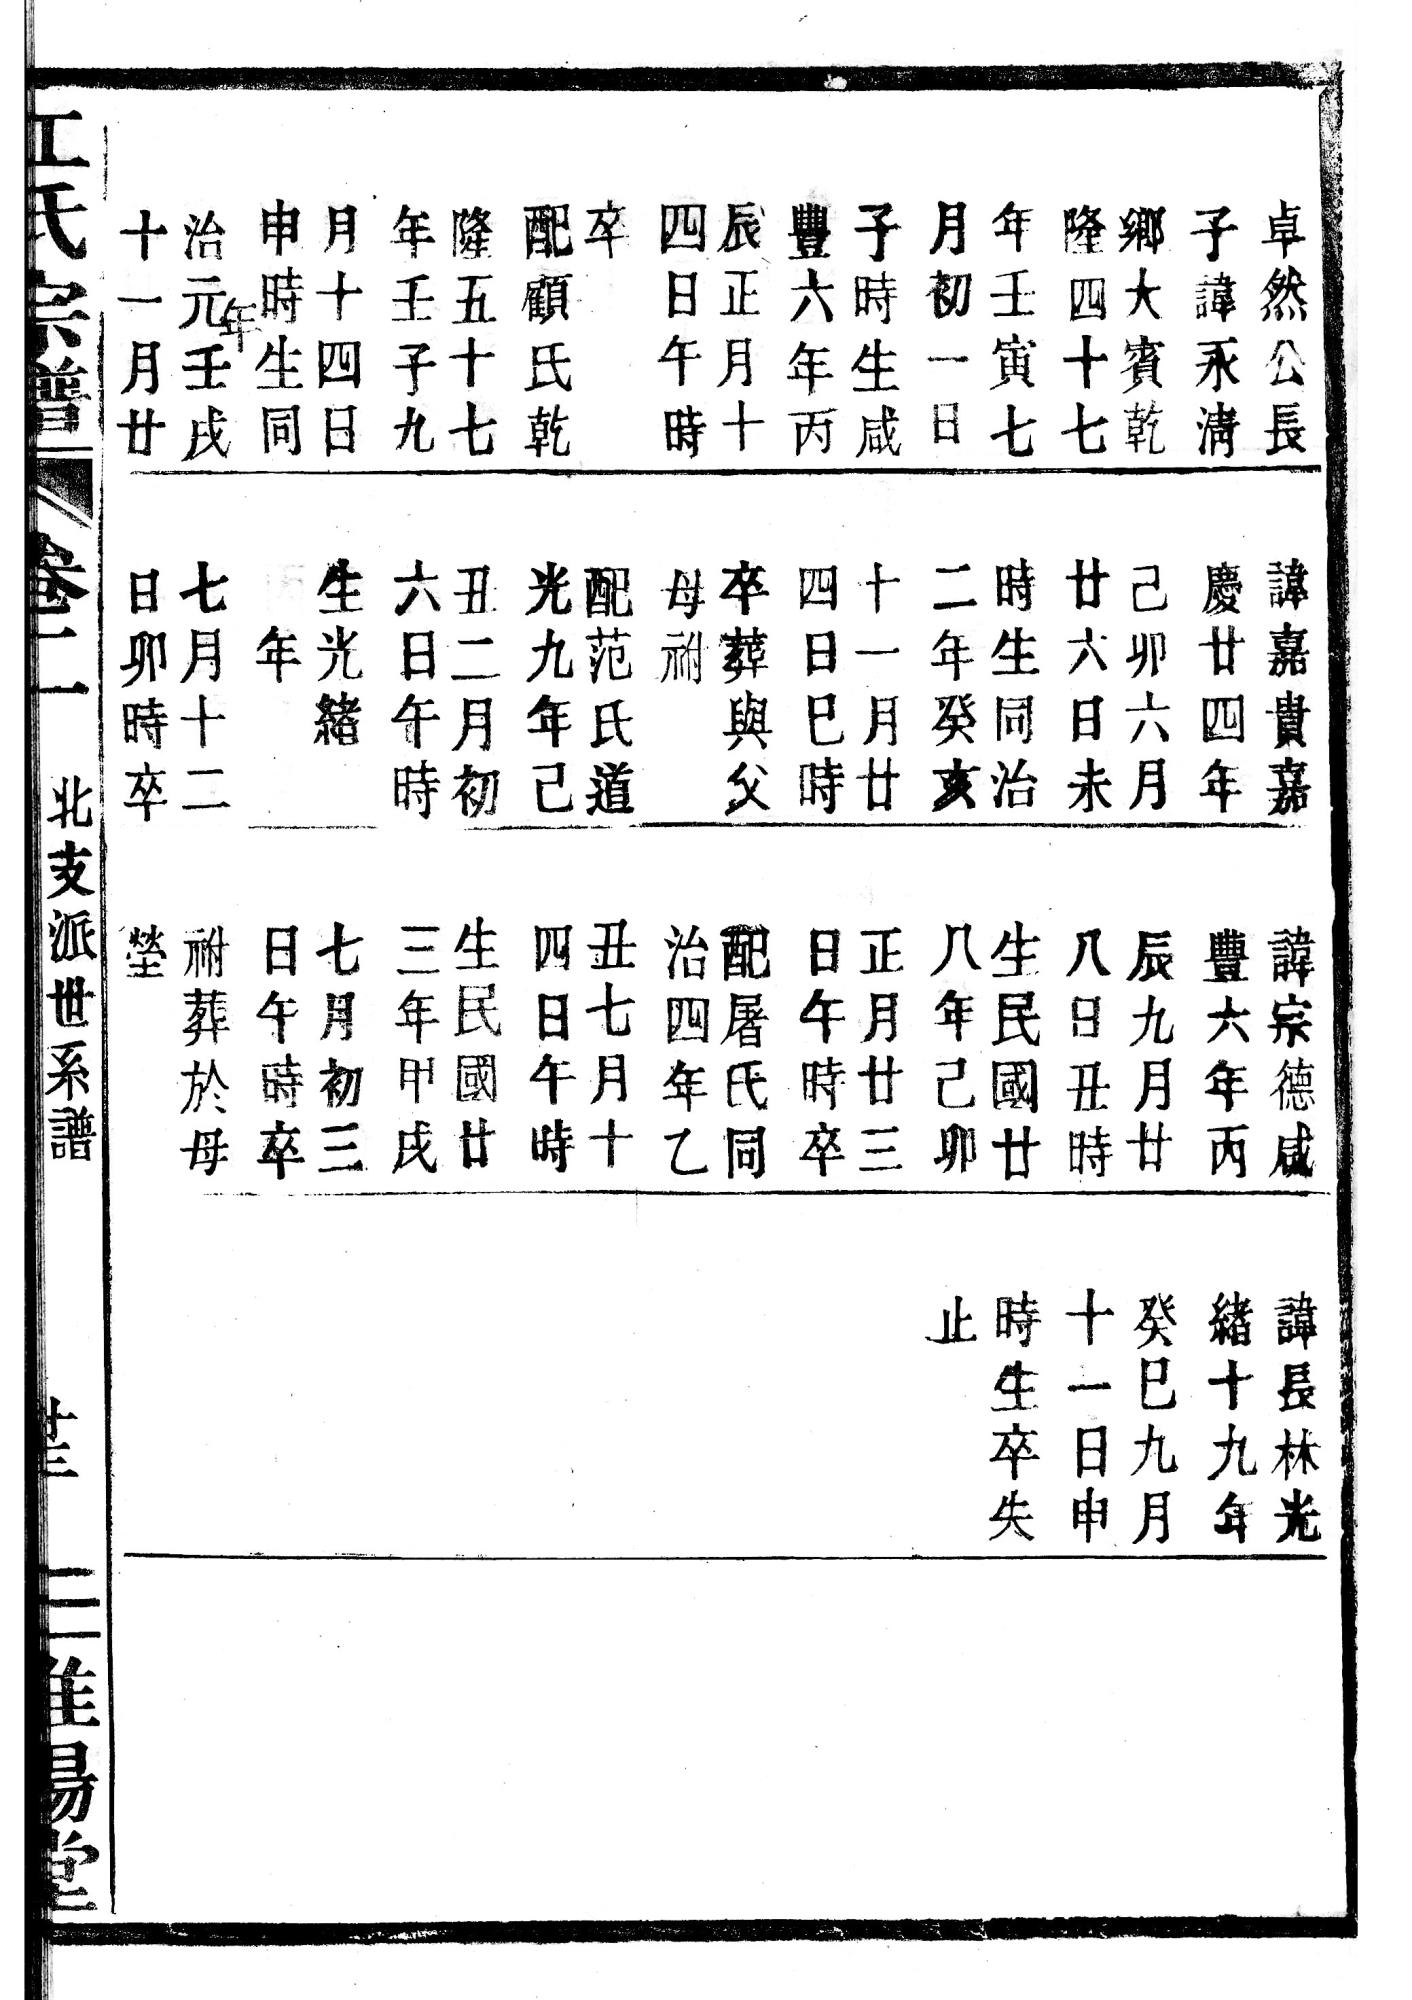 卓然公長
子諱永淸
鄉大賓乾
隆四十七
年壬寅七
月初一日
子時生咸
豐六年丙
辰正月十
四日午時
卒
配顧氏乾
隆五十七
年壬子九
月十四日
申時生同
治元年壬戌
十一月廿
諱嘉貴嘉
慶廿四年
己卯六月
廿六日未
時生同治
二年癸亥
十一月廿
四日巳時
卒葬與父
母祔
配范氏道
光九年己
丑二月初
六日午時
生光緒
年
七月十二
日卯時卒
諱宗德咸
豐六年丙
辰九月廿
八日丑時
生民國廿
八年己卯
正月廿三
日午時卒
配屠氏同
治四年乙
丑七月十
四日午時
生民國廿
三年甲戌
七月初三
日午時卒
祔葬於母
塋
諱長林光
緒十九年
癸巳九月
十一日申
時生卒失
止
江氏宗譜
卷二
北支派世系譜
廿三
淮陽堂